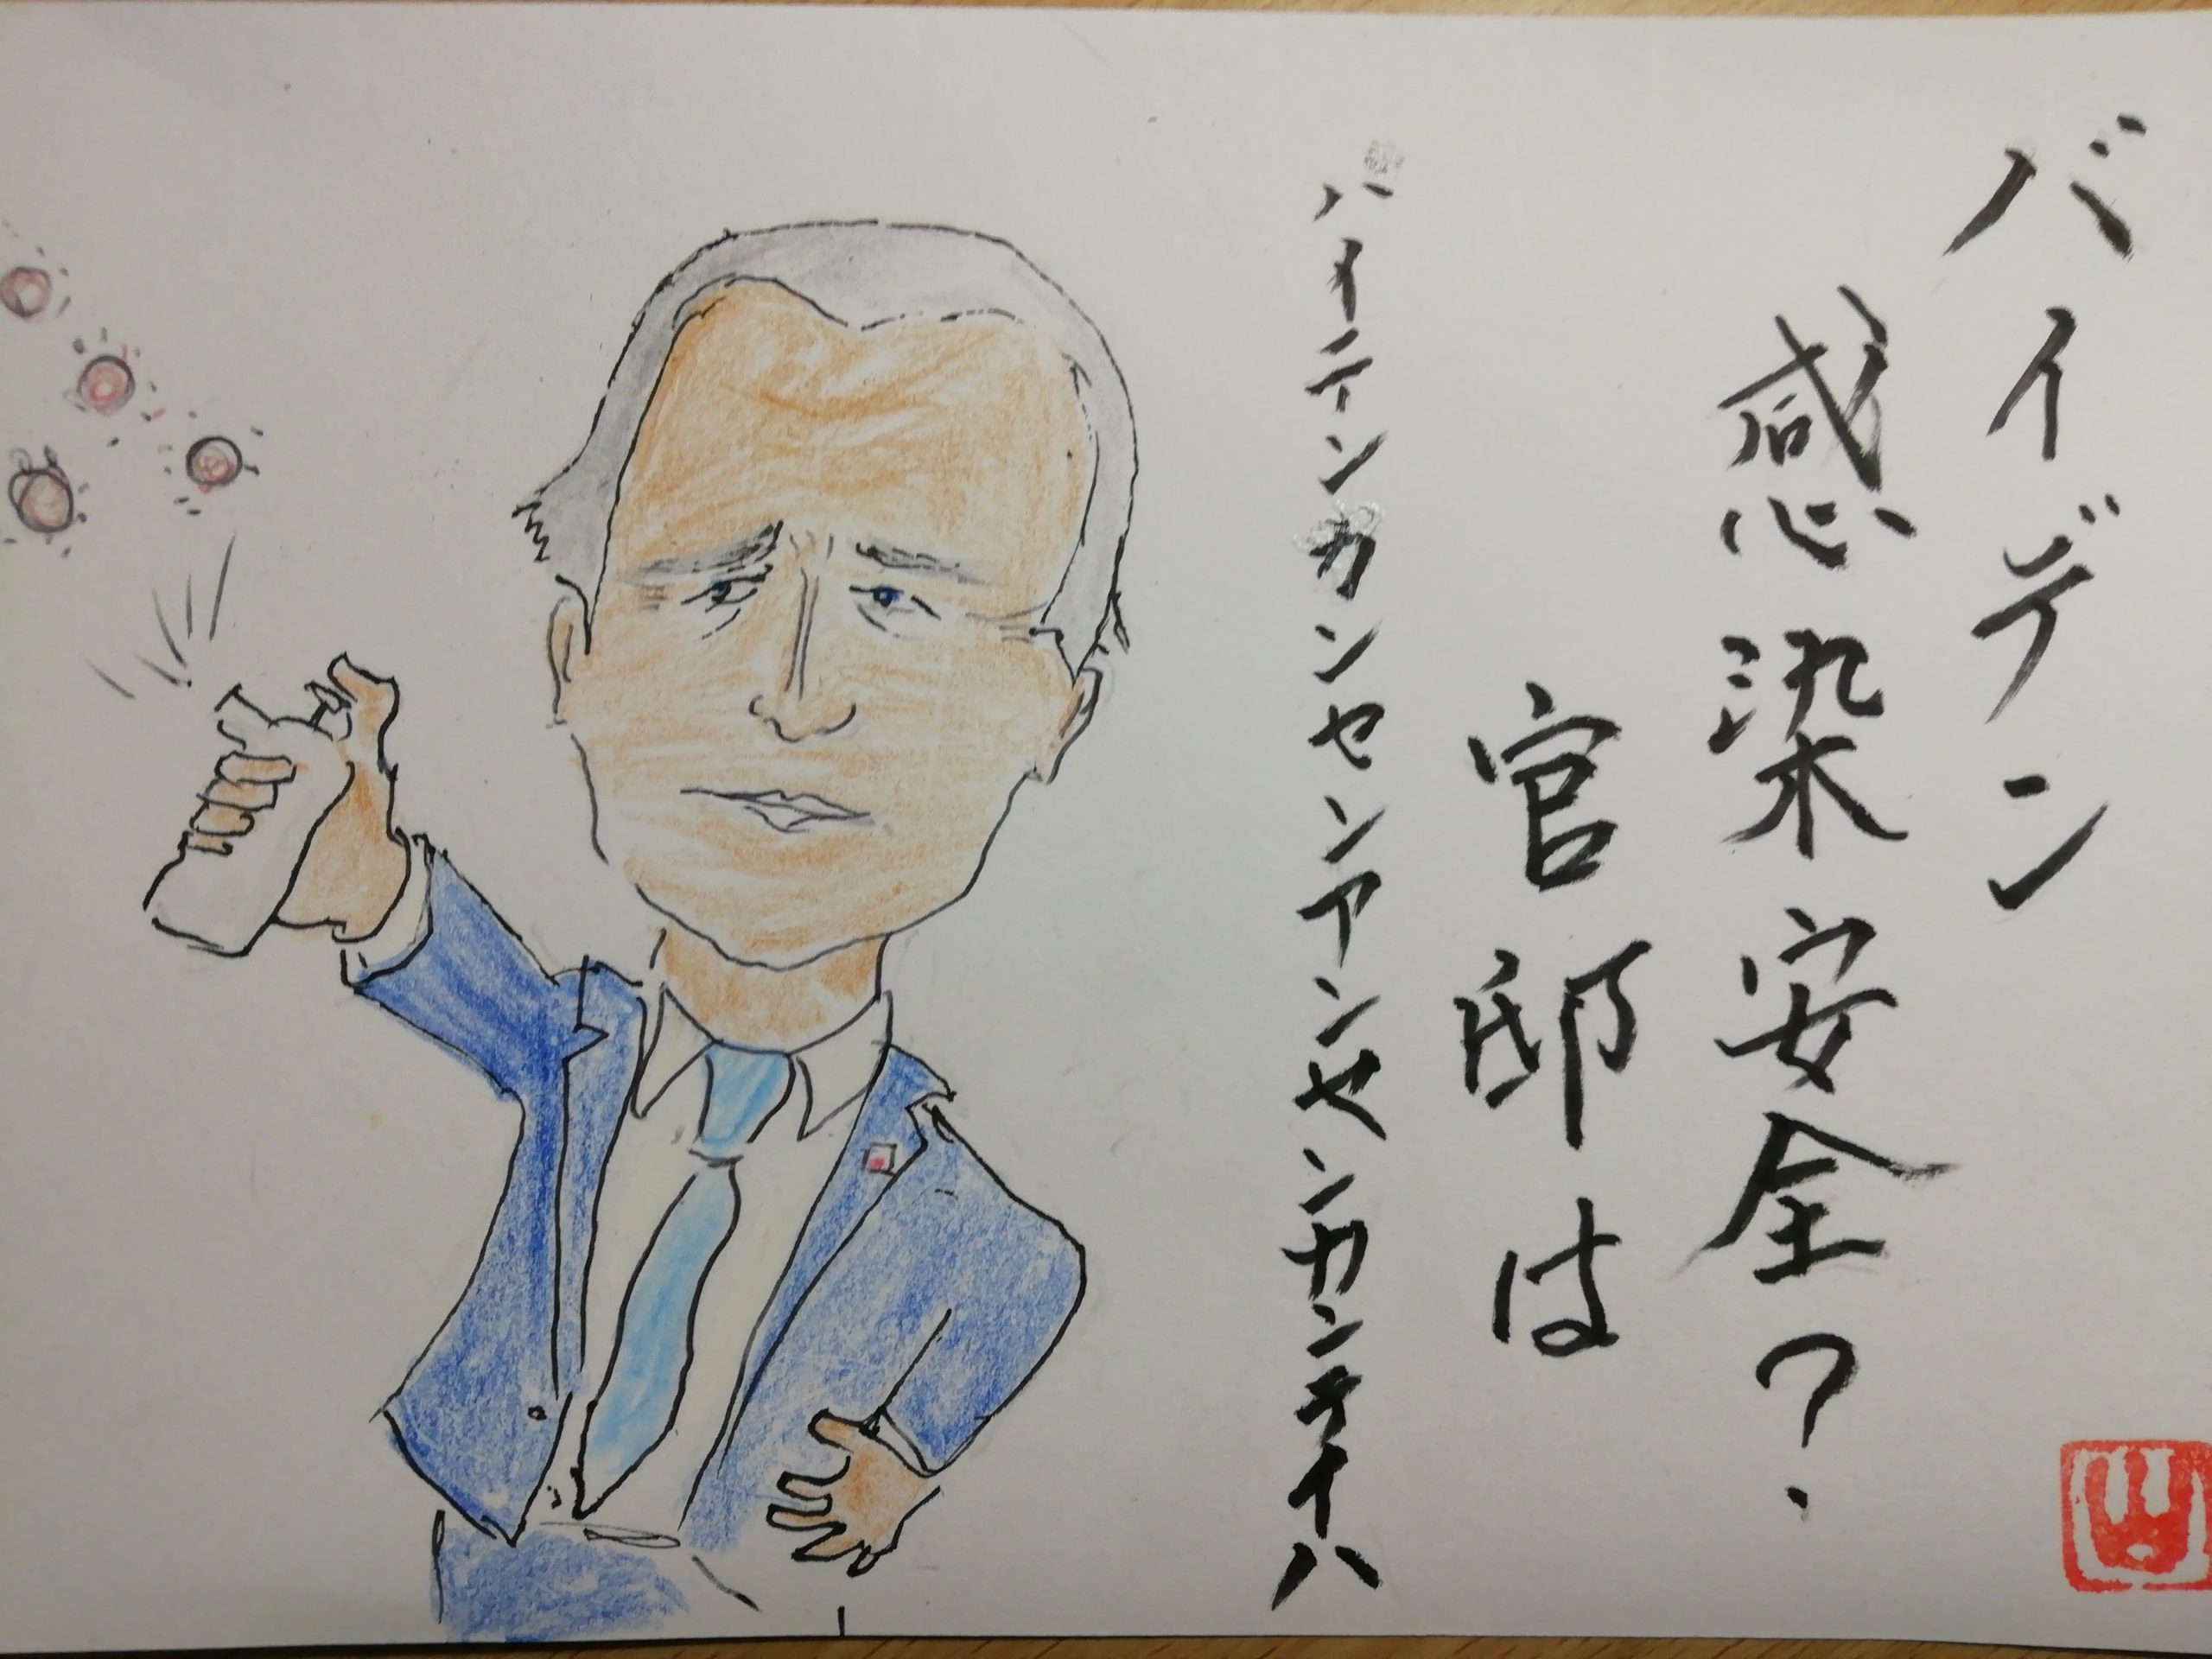 バイデン
感染安全?
官邸は
ハイテンカンセンアンセンカンテイハ